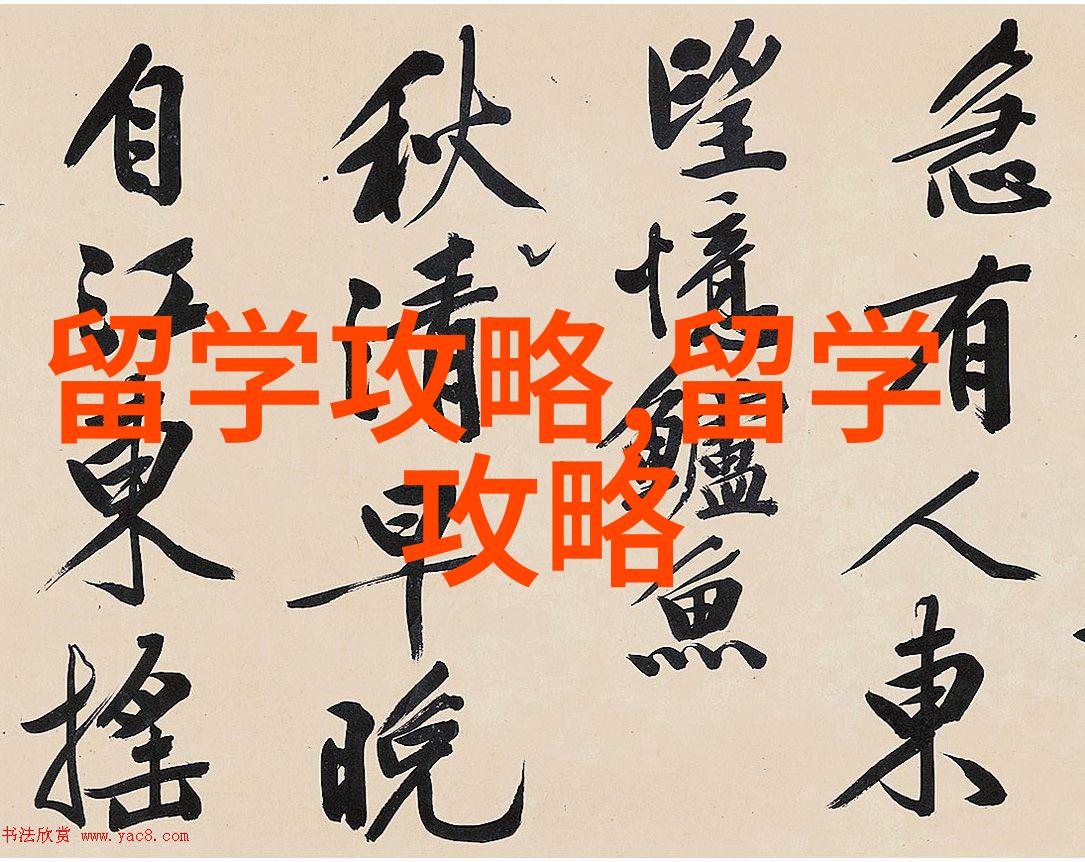 急有人東
望憶鱸魚
秋清早晚
自江東搖
留学攻略,留学
攻略
书法欣赏 www.yac8.com